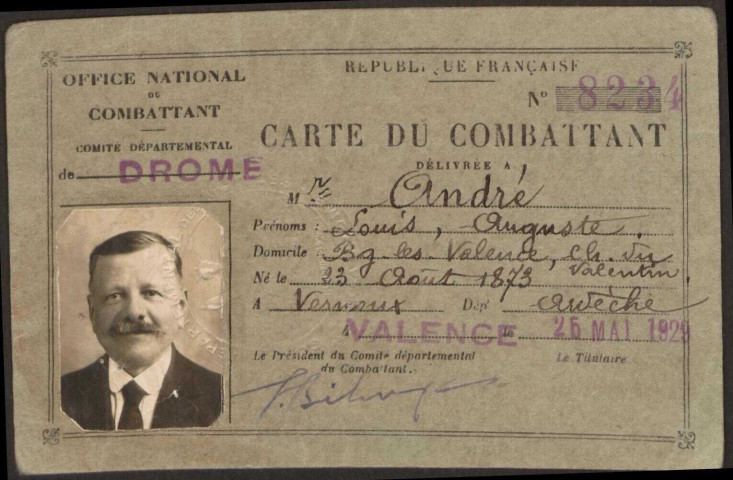 OFFICE NATIONAL
DU
COMBATTANT
COMITÉ DÉPARTEMENTAL
de DROME
RÉPUBLIQUE FRANÇAISE
N° 8234
CARTE DU COMBATTANT
DÉLIVRÉE A
M r André
Prénoms : Louis, Auguste.
Domicile : Bg-les-Valence, Ch. du
Valentin
Né le 23 Août 1873
A Vernoux Dépt Ardèche
A VALENCE le 25 MAI 1929
Le Président du Comité départemental
du Combattant.
Le Titulaire